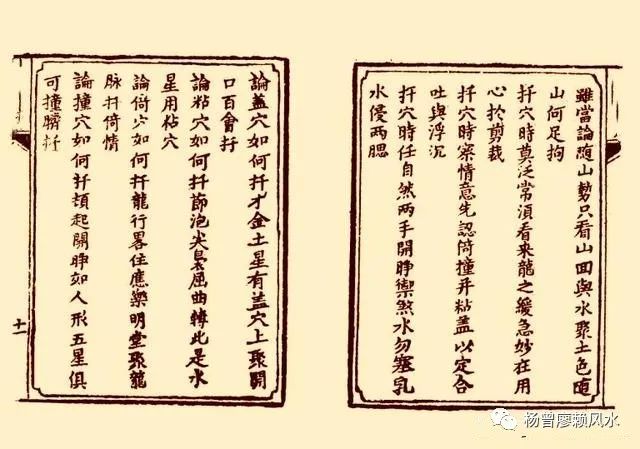 雖當論随山勢只看山囬與水聚土色随
山何足拘
扦穴時莫泛常湏看来龍之緩急妙在用
心於剪裁
扦穴時察情意先認倚撞并粘盖以定合
吐與浮沉
扦穴時任自然两手開睁禦煞水勿塞乳
水侵两腮
論盖穴如何扦才金土星有盖穴上聚開
口百會扦
論粘穴如何扦節泡尖屈曲轉此是水
星用粘穴
論倚穴如何扦龍行畧住應樂明堂聚龍
脉扦倚情
論撞穴如何扦頭起開睁如人形五星俱
可撞臍扦
十一
杨曾廖赖风水